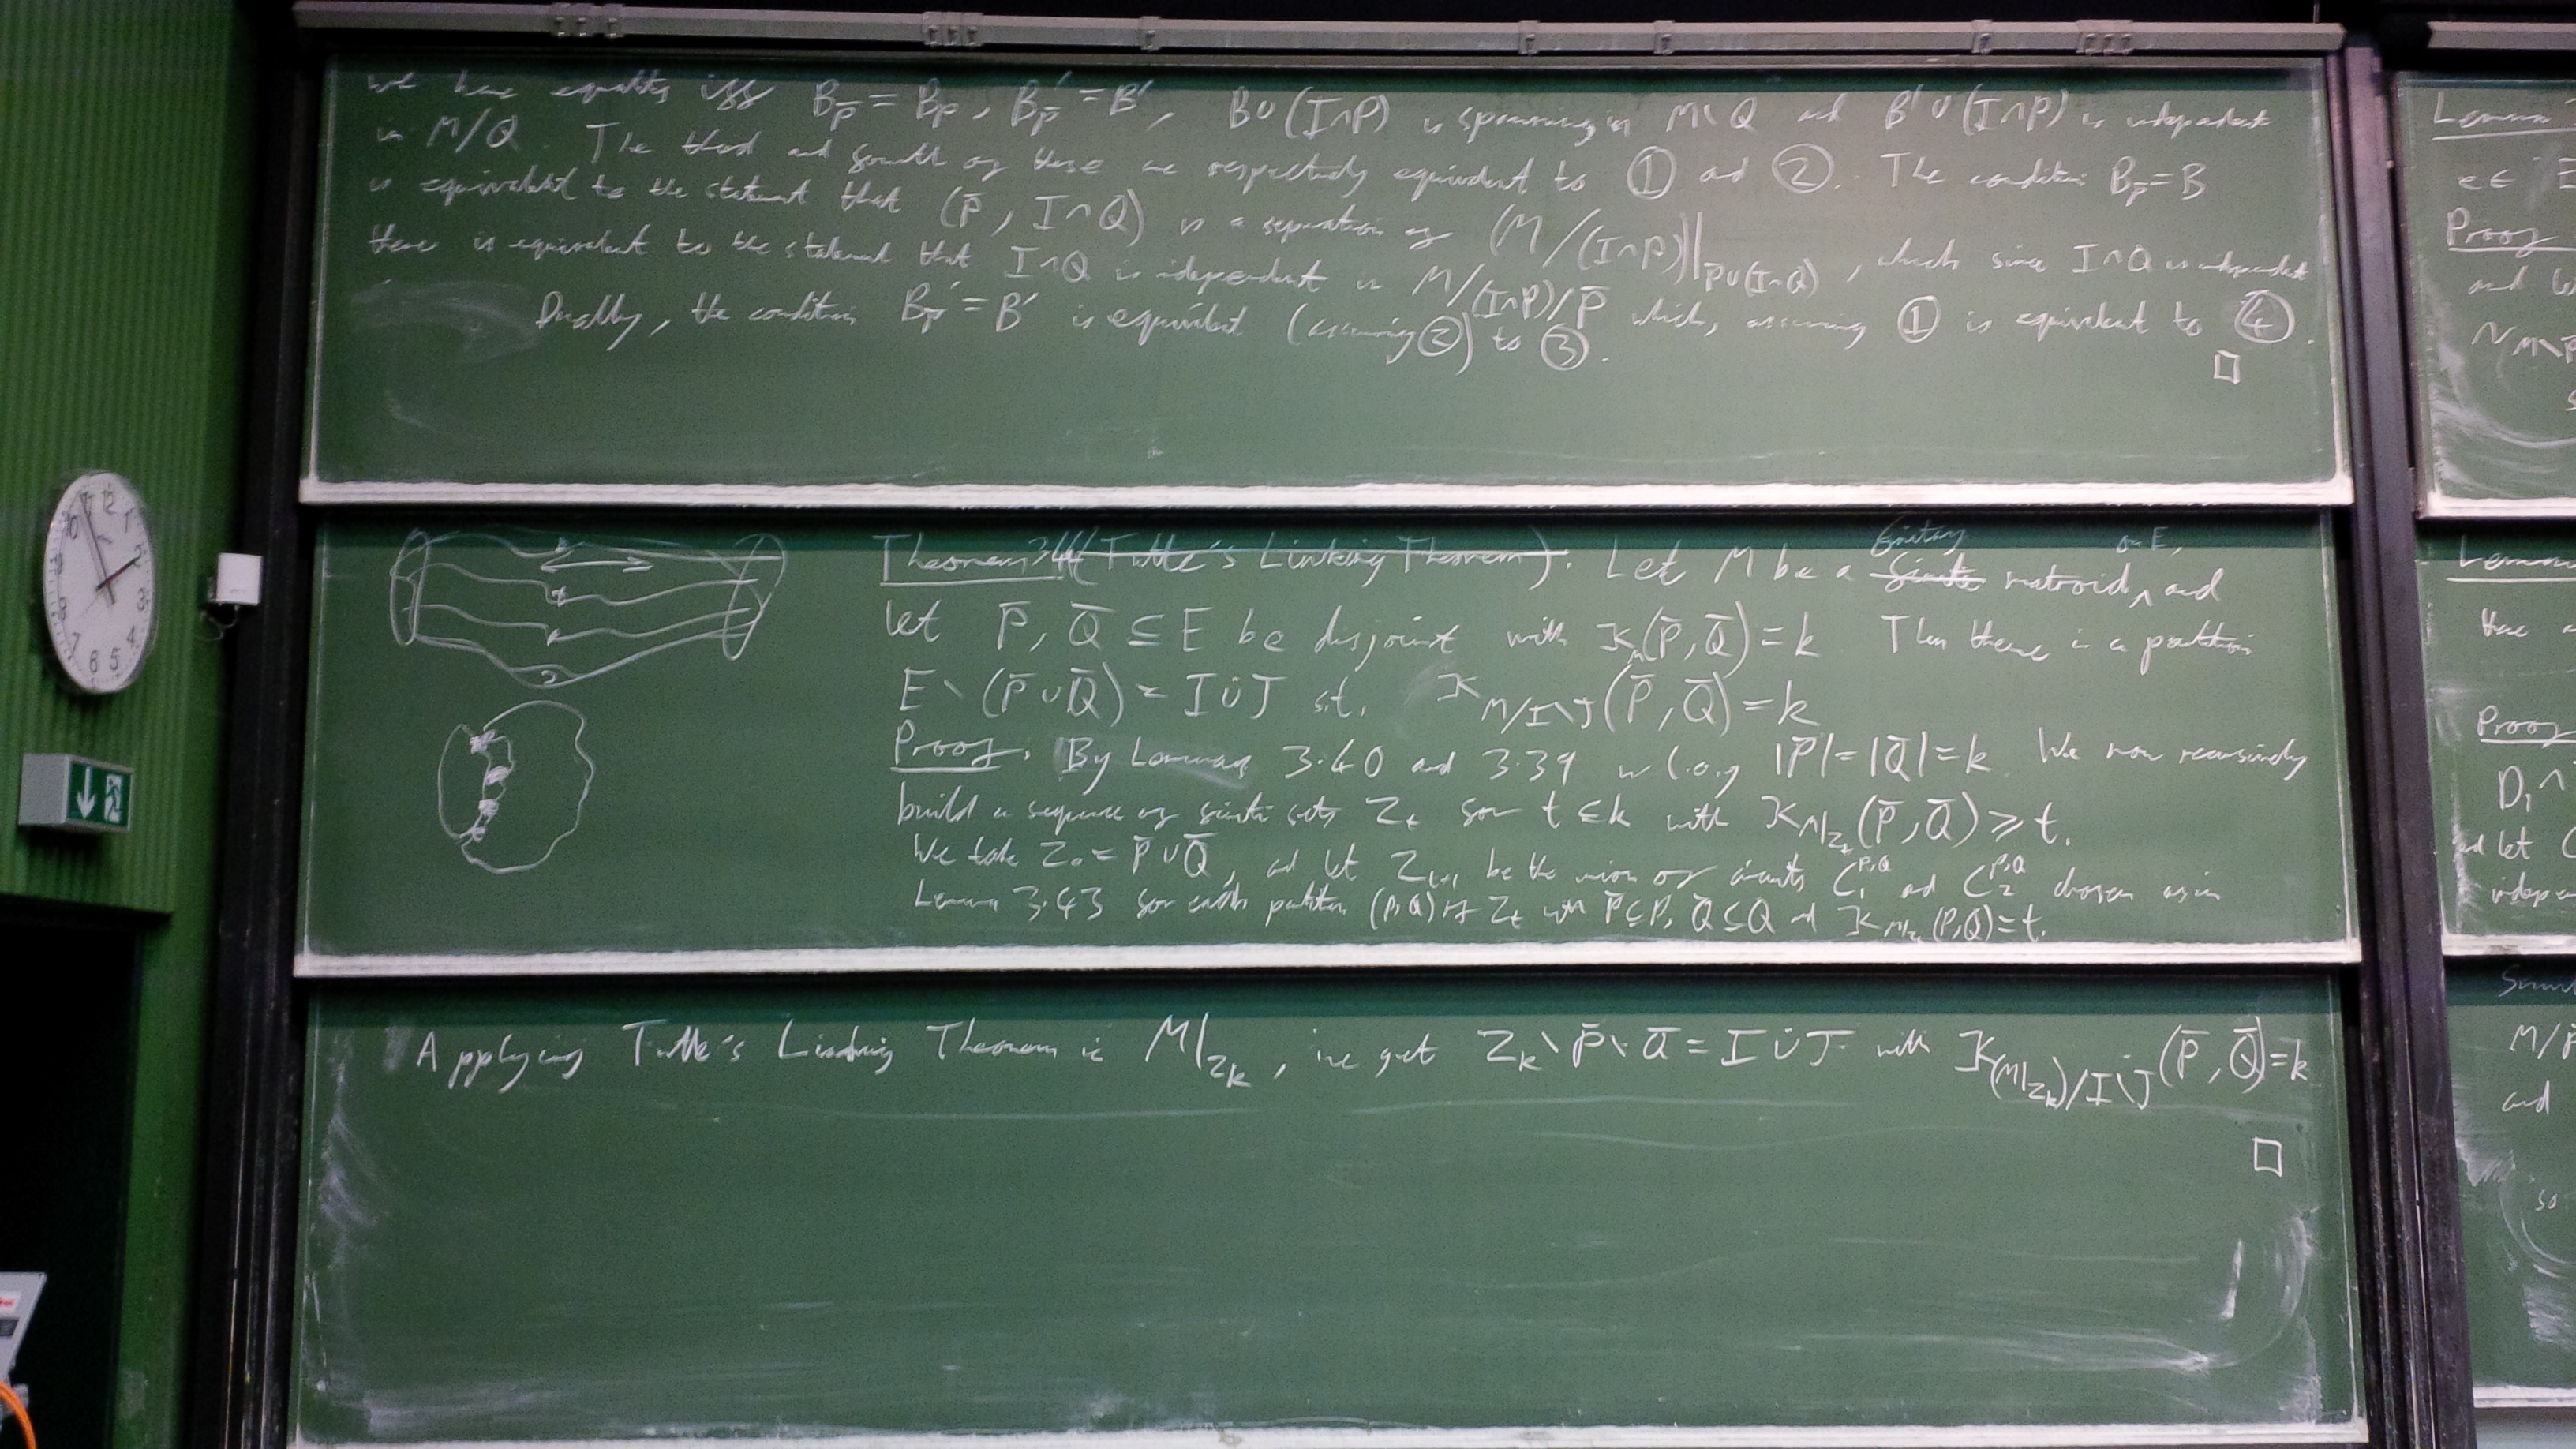 we have equality iff B_P̄ = B_P, B'_P̄ = B', B∪(I∩P) is spanning in M\Q and B'∪(I∩P) is independent
in M/Q. The third and fourth of these are respectively equivalent to ① and ②. The condition B_P̄ = B
is equivalent to the statement that (P̄, I∩Q) is a separation of (M/(I∩P))|_P̄∪(I∩Q), which since I∩Q is independent
there is equivalent to the statement that I∩Q is independent in M/(I∩P)/P̄ which, assuming ① is equivalent to ④.
Dually, the condition B'_P̄ = B' is equivalent (assuming ②) to ③.
□
Theorem 3.44 (Tutte's Linking Theorem). Let M be a finitary finite matroid, on E, and
let P̄, Q̄ ⊆ E be disjoint with κ_M(P̄, Q̄) = k Then there is a partition
E \ (P̄ ∪ Q̄) = I ∪̇ J s.t. κ_M/I\J (P̄, Q̄) = k
Proof. By Lemmas 3.40 and 3.39 w.l.o.g |P̄| = |Q̄| = k. We now recursively
build a sequence of finite sets Z_t for t ≤ k with κ_M|Z_t (P̄, Q̄) ⩾ t.
We take Z_0 = P̄ ∪ Q̄, and let Z_t+1 be the union of circuits C_1^P,Q and C_2^P,Q chosen as in
Lemma 3.43 for each partition (P,Q) of Z_t with P̄ ⊆ P, Q̄ ⊆ Q and κ_M|Z_t (P,Q) = t.
Applying Tutte's Linking Theorem in M|_Z_k, we get Z_k \ P̄ \ Q̄ = I ∪̇ J with κ_(M|_Z_k)/I\J (P̄, Q̄) = k
□
Lemma
e ∈ E
Proof
and
N_M\P̄
Lemma
Proof
D_1 ∩
and let C
M/P̄
and
so
12
1
2
3
4
5
6
7
8
9
10
11